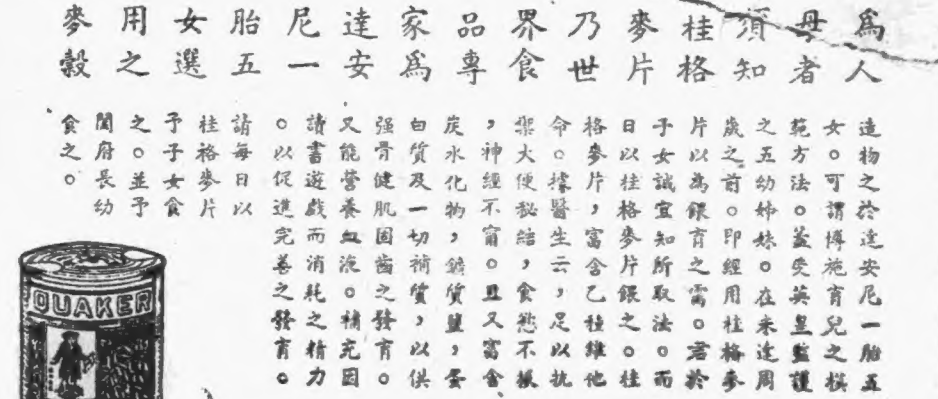 為人
母者
須知
桂格
麥片
乃世
界食
品專
家為
達安
尼一
胎五
女選
用之
麥穀
造物之於達安尼一胎五
女。可謂博施育兒之模
範方法。蓋受英皇監護
之五幼姊妹。在未達周
歲之前。即經用桂格麥
片以為餵育之需。君於
子女誠宜知所取法。而
日以桂格麥片餵之。桂
格麥片,富含乙種維他
命。據醫生云,足以抗
禦大便秘結,食慾不振
,神經不甯。且又富含
炭水化物,鐵質鹽,蛋
白質及一切補質,以供
强骨健肌固齒之發育。
又能營養血液。補充因
讀書遊戲而消耗之精力
。以促進完善之發育。
請每日以
桂格麥片
予子女食
之。並予
閤府長幼
食之。
QUAKER